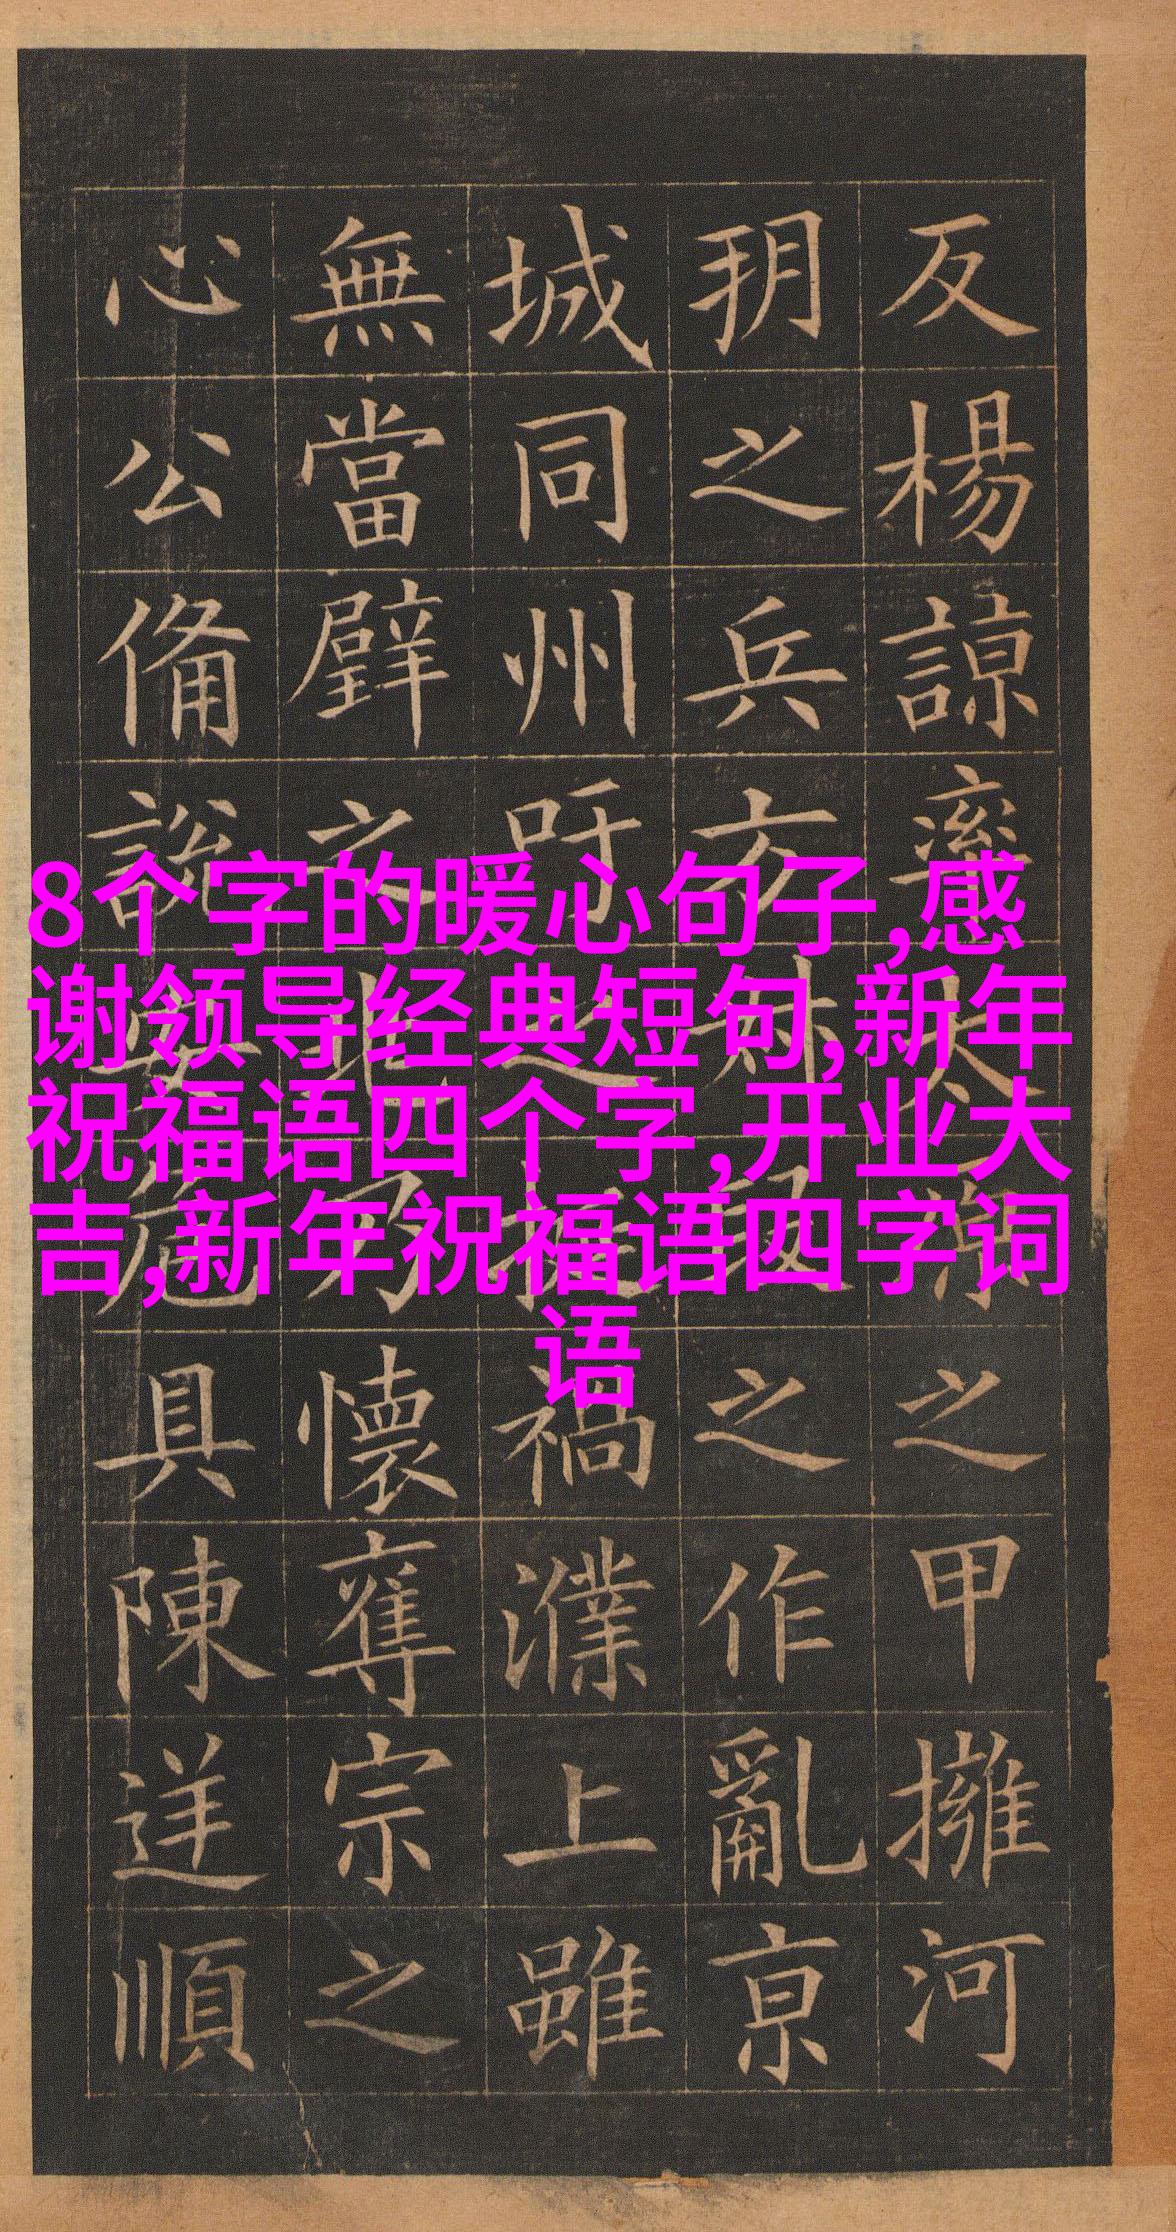 反楊諒率大之甲擁河
朔之兵方叔段之作亂京
城同州吁之禍濮上雖
無當璧之兆乃懷奪宗之
心公備說安危具陳逆順
8个字的暖心句子,感
谢领导经典短句,新年
祝福语四个字,开业大
吉,新年祝福语四字词
语